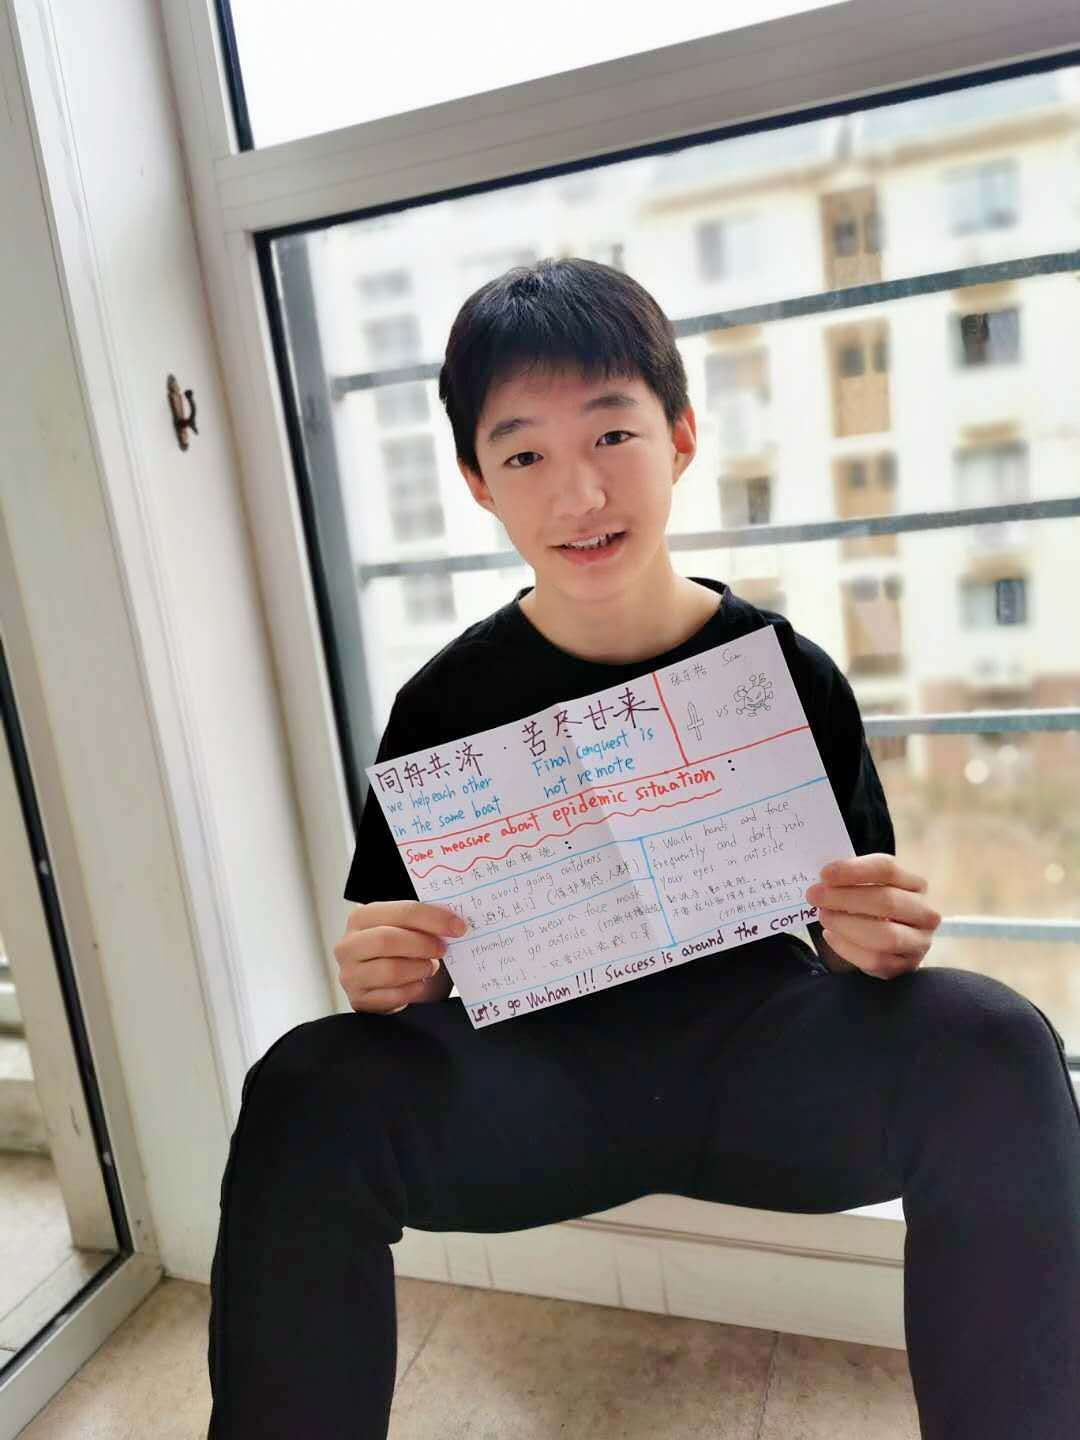 同舟共济 · 苦尽甘来
we help each other
in the same boat
Final conquest is
not remote
Sam
VS
Some measure about epidemic situation :
一些对于疫情的措施 :
Try to avoid going outdoors.
避免出门 (保护易感人群)
2 remember to wear a face mask
if you go outside
如果出门,一定要记住去戴口罩
3 Wash hands and face
frequently and don't rub
your eyes in outside
勤洗手,勤洗脸,
Let's go Wuhan!!! Success is around the corne